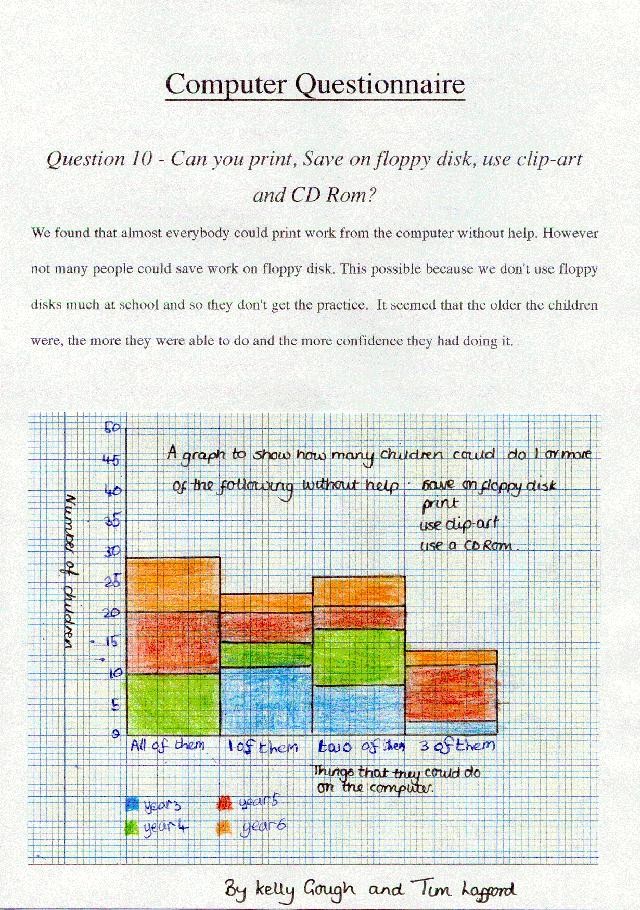 Computer Questionnaire
Question 10 - Can you print, Save on floppy disk, use clip-art
and CD Rom?
We found that almost everybody could print work from the computer without help. However
not many people could save work on floppy disk. This possible because we don't use floppy
disks much at school and so they don't get the practice. It seemed that the older the children
were, the more they were able to do and the more confidence they had doing it.
50
45
40
35
30
25
20
15
10
5
0
Number of children
A graph to show how many children could do 1 or more
of the following without help: save on floppy disk
print
use clip-art
use a CD Rom.
All of them 1 of them two of them 3 of them
Things that they could do
on the computer.
year3 year5
year4 year6
By Kelly Gough and Tim